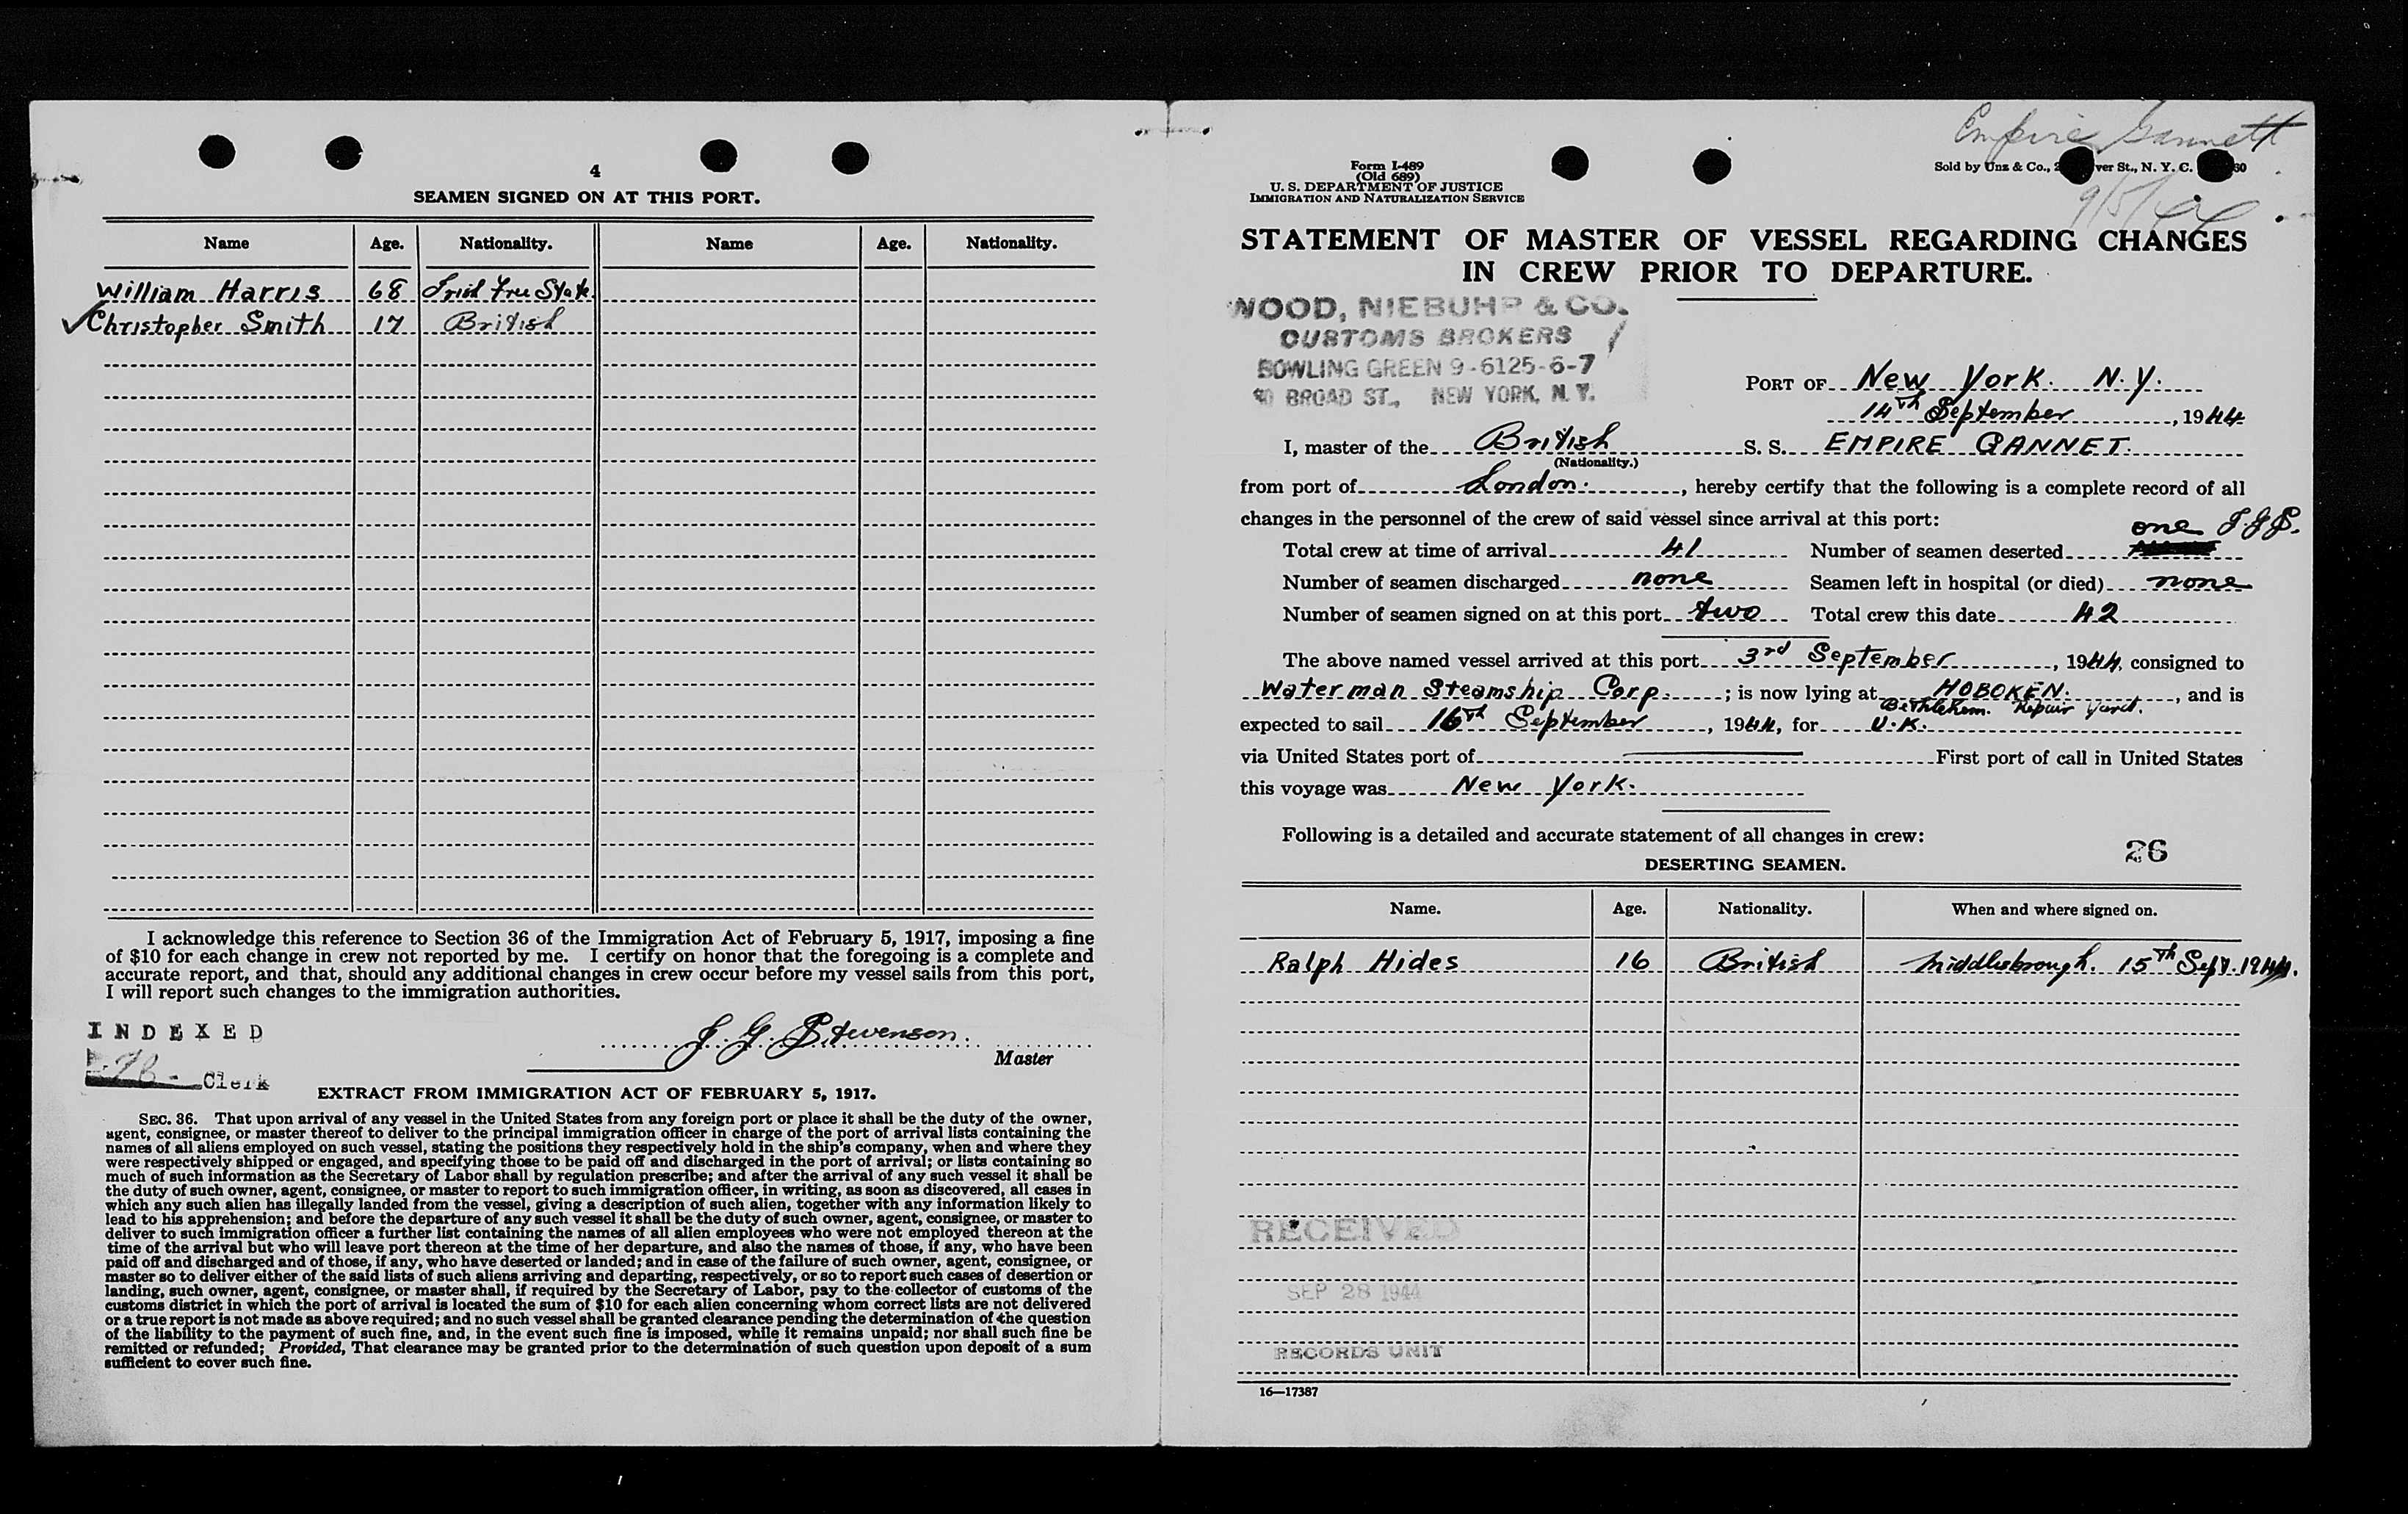 4
SEAMEN SIGNED ON AT THIS PORT.
Name Age. Nationality. Name Age. Nationality.
William Harris 68 Irish Free State.
✓Christopher Smith 17 British
I acknowledge this reference to Section 36 of the Immigration Act of February 5, 1917, imposing a fine
of $10 for each change in crew not reported by me. I certify on honor that the foregoing is a complete and
accurate report, and that, should any additional changes in crew occur before my vessel sails from this port,
I will report such changes to the immigration authorities.
INDEXED
J. G. Stevenson.
Master
Clerk
EXTRACT FROM IMMIGRATION ACT OF FEBRUARY 5, 1917.
SEC. 36. That upon arrival of any vessel in the United States from any foreign port or place it shall be the duty of the owner,
agent, consignee, or master thereof to deliver to the principal immigration officer in charge of the port of arrival lists containing the
names of all aliens employed on such vessel, stating the positions they respectively hold in the ship's company, when and where they
were respectively shipped or engaged, and specifying those to be paid off and discharged in the port of arrival; or lists containing so
much of such information as the Secretary of Labor shall by regulation prescribe; and after the arrival of any such vessel it shall be
the duty of such owner, agent, consignee, or master to report to such immigration officer, in writing, as soon as discovered, all cases in
which any such alien has illegally landed from the vessel, giving a description of such alien, together with any information likely to
lead to his apprehension; and before the departure of any such vessel it shall be the duty of such owner, agent, consignee, or master to
deliver to such immigration officer a further list containing the names of all alien employees who were not employed thereon at the
time of the arrival but who will leave port thereon at the time of her departure, and also the names of those, if any, who have been
paid off and discharged and of those, if any, who have deserted or landed; and in case of the failure of such owner, agent, consignee, or
master so to deliver either of the said lists of such aliens arriving and departing, respectively, or so to report such cases of desertion or
landing, such owner, agent, consignee, or master shall, if required by the Secretary of Labor, pay to the collector of customs of the
customs district in which the port of arrival is located the sum of $10 for each alien concerning whom correct lists are not delivered
or a true report is not made as above required; and no such vessel shall be granted clearance pending the determination of the question
of the liability to the payment of such fine, and, in the event such fine is imposed, while it remains unpaid; nor shall such fine be
remitted or refunded; Provided, That clearance may be granted prior to the determination of such question upon deposit of a sum
sufficient to cover such fine.
Empire Gannett
Form I-489
(Old 689)
U. S. DEPARTMENT OF JUSTICE
IMMIGRATION AND NATURALIZATION SERVICE
Sold by Unz & Co., St., N. Y. C.
9/5/44
STATEMENT OF MASTER OF VESSEL REGARDING CHANGES
IN CREW PRIOR TO DEPARTURE.
WOOD, NIEBUHR & CO.
CUSTOMS BROKERS
BOWLING GREEN 9-6125-6-7
BROAD ST., NEW YORK, N. Y.
PORT OF New York. N.Y.
14th September, 1944
I, master of the British S. S. EMPIRE GANNET.
(Nationality.)
from port of London., hereby certify that the following is a complete record of all
changes in the personnel of the crew of said vessel since arrival at this port:
one J.G.S.
Total crew at time of arrival 41 Number of seamen deserted
Number of seamen discharged none Seamen left in hospital (or died) none
Number of seamen signed on at this port two Total crew this date 42
The above named vessel arrived at this port 3rd September, 1944, consigned to
Waterman Steamship Corp.; is now lying at HOBOKEN., and is
Bethlehem. Repair Yard.
expected to sail 16th September, 1944, for U.K.
via United States port of First port of call in United States
this voyage was New York.
Following is a detailed and accurate statement of all changes in crew:
26
DESERTING SEAMEN.
Name. Age. Nationality. When and where signed on.
Ralph Hides 16 British Middlesbrough. 15th Sept. 1944.
RECEIVED
SEP 28 1944
RECORDS UNIT
16—17387